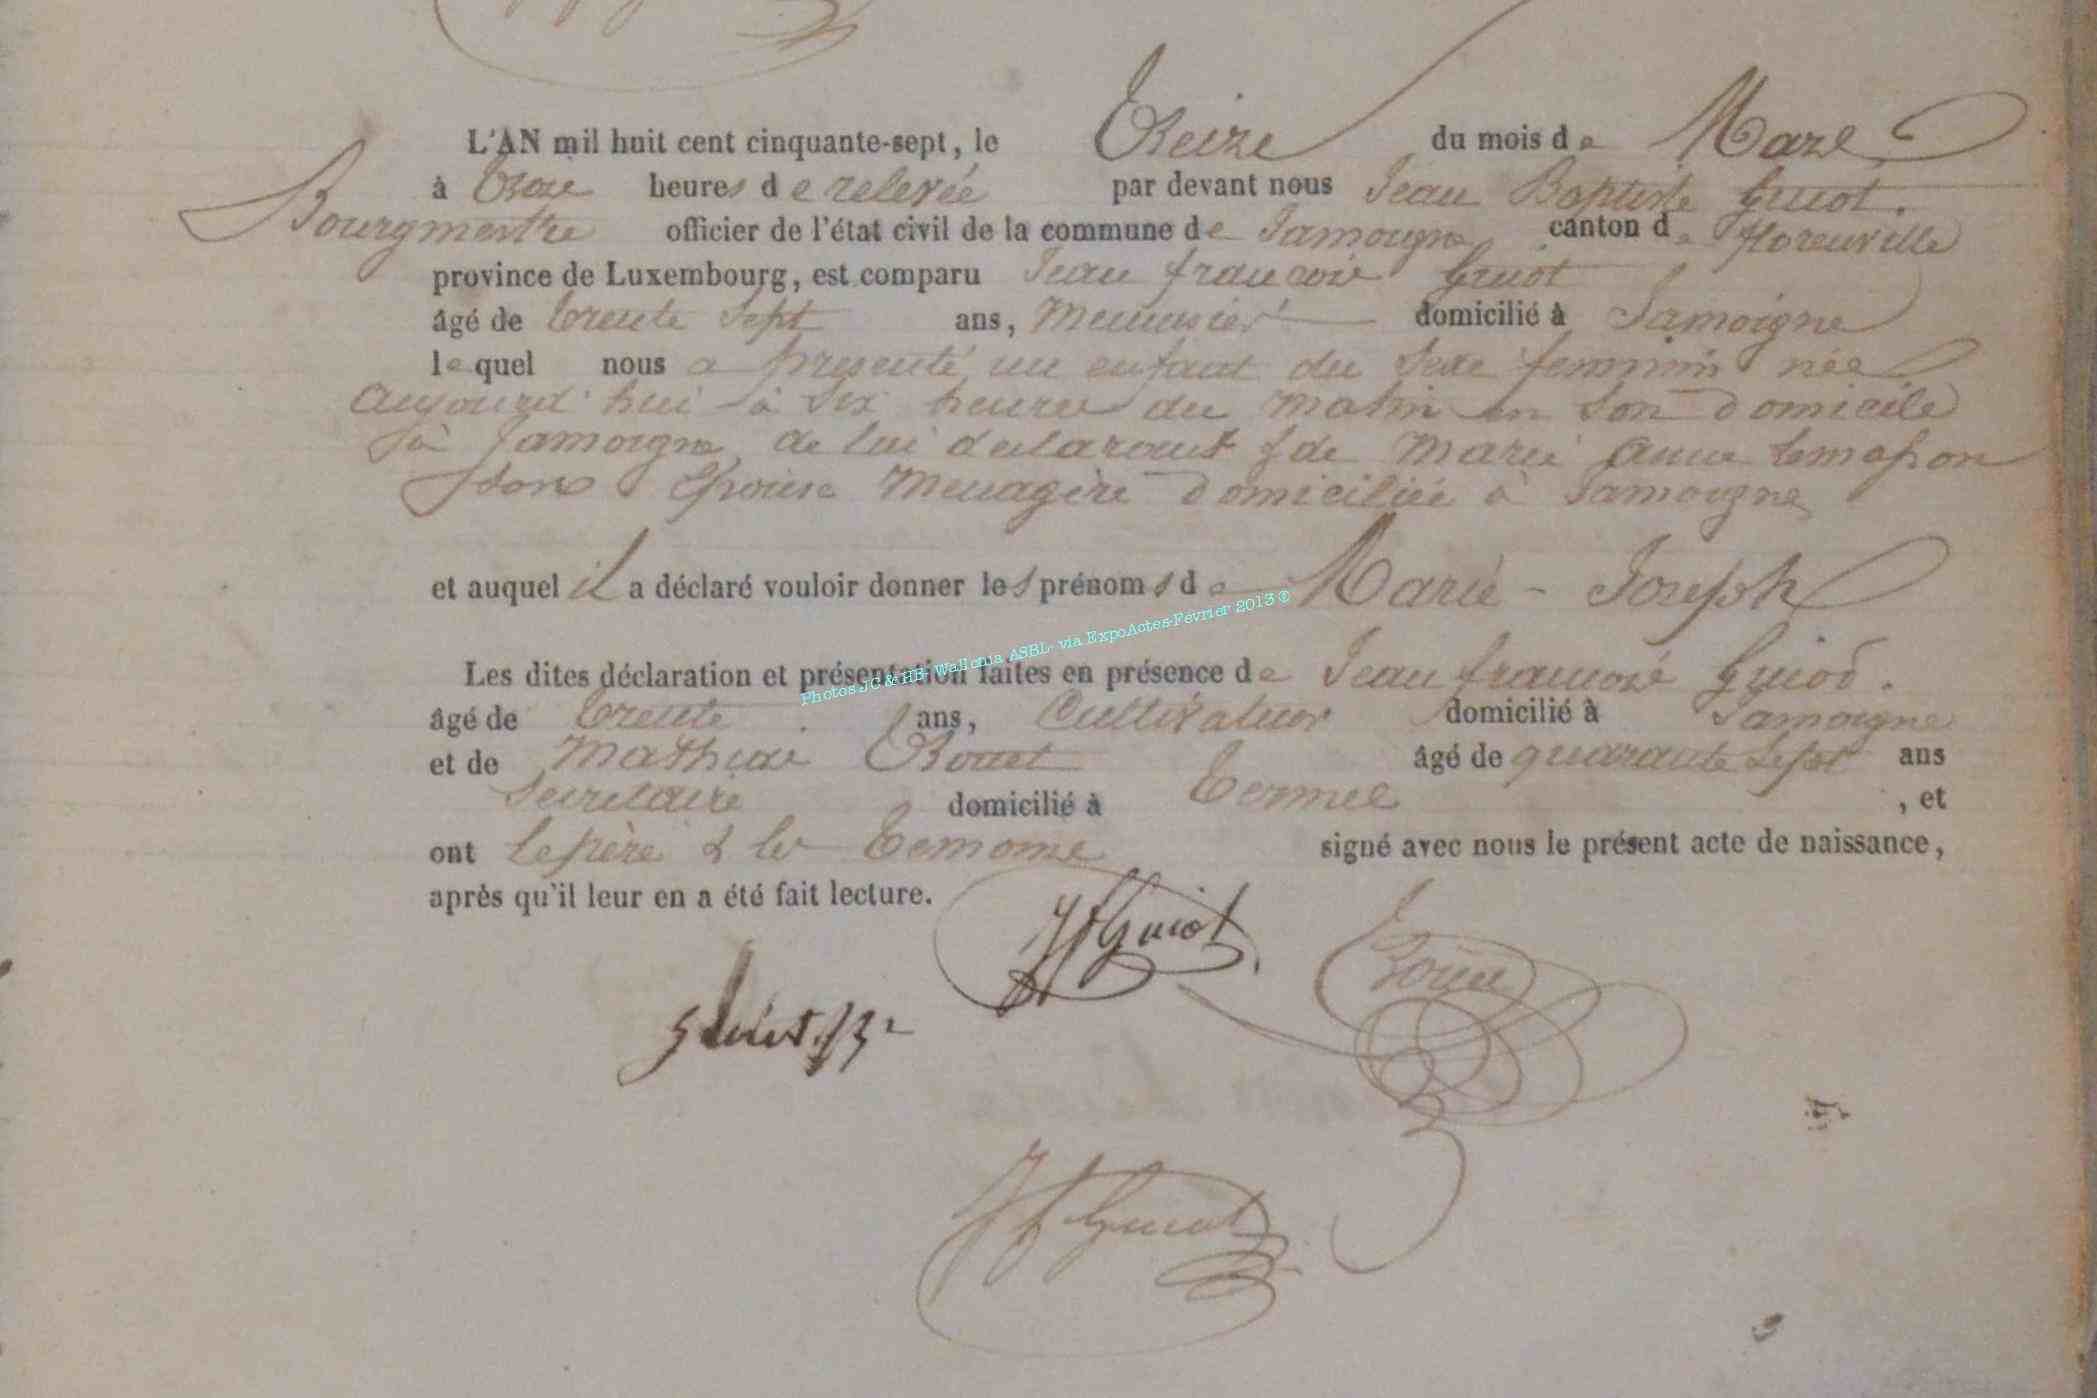 L'AN mil huit cent cinquante-sept, le Treize du mois de Mars
à Trois heures de relevée par devant nous Jean Baptiste Guiot.
Bourgmestre officier de l'état civil de la commune de Jamoigne canton de florenville
province de Luxembourg, est comparu Jean françois Guiot
âgé de trente sept ans, Menuisier domicilié à Jamoigne
lequel nous a présenté un enfant du sexe feminin née
aujourd'hui à six heures du matin en son domicile
à Jamoigne de lui déclarant & de Marie anne
son Epouse Menagère domiciliée à Jamoigne
et auquel il a déclaré vouloir donner les prénoms de Marie - Joseph
Les dites déclaration et présentation faites en présence de Jean françois Guiot.
âgé de trente ans, Cultivateur domicilié à Jamoigne
et de Mathias âgé de quarante sept ans
Secretaire domicilié à Termes, et
ont le père & les Temoins signé avec nous le présent acte de naissance,
après qu'il leur en a été fait lecture.
Photos JC & HB- Wallonia ASBL- via ExpoActes-Février 2013 ©
Jf Guiot
Jf Guiot